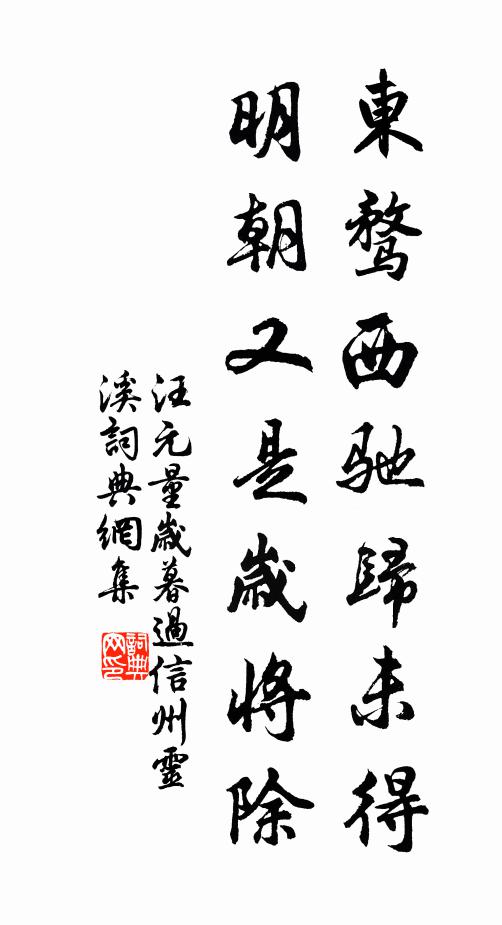 東鶩西馳歸未得
明朝又是歲將除
汪元量歲暮過信州靈
溪詞典網集
詞典网印